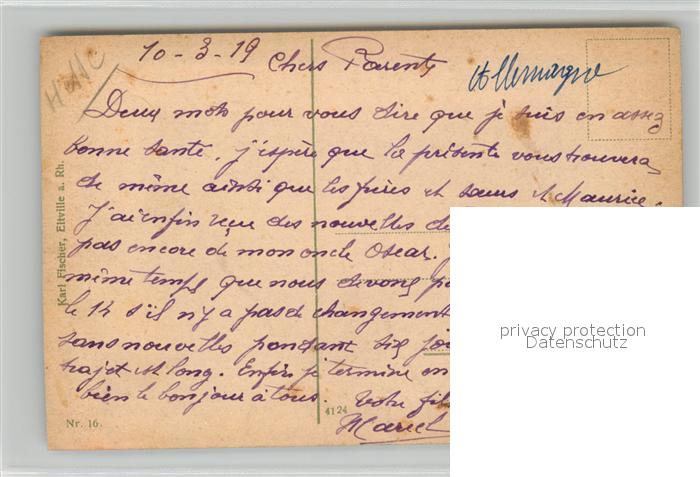 10-3-19
Chers Parents
Allemagne
Deux mots pour vous dire que je suis en assez
bonne santé, j'espère que la présente vous trouvera
de même ainsi que les frères et sœurs et Maurice.
J'ai enfin reçu des nouvelles de
pas encore de mon oncle Oscar.
même temps que nous devons
le 14 s'il n'y a pas de changement
sans nouvelles pendant
trajet est long. Enfin je termine en
bien le bonjour à tous. Votre fils
Marcel
Karl Fischer, Eltville a. Rh.
Nr. 16.
4124
privacy protection
Datenschutz